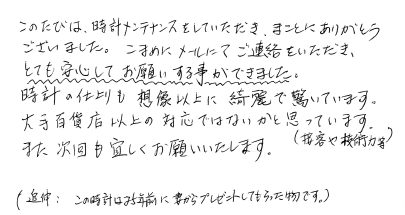 このたびは、時計メンテナンスをしていただき、まことにありがとう
ございました。こまめにメールにてご連絡をいただき、
とても安心してお願いする事ができました。
時計の仕上りも想像以上に綺麗で驚いています。
大手百貨店以上の対応ではないかと思っています。
(接客や技術力等)
また次回も宜しくお願いいたします。
(追伸:この時計は25年前に妻からプレゼントしてもらった物です。)